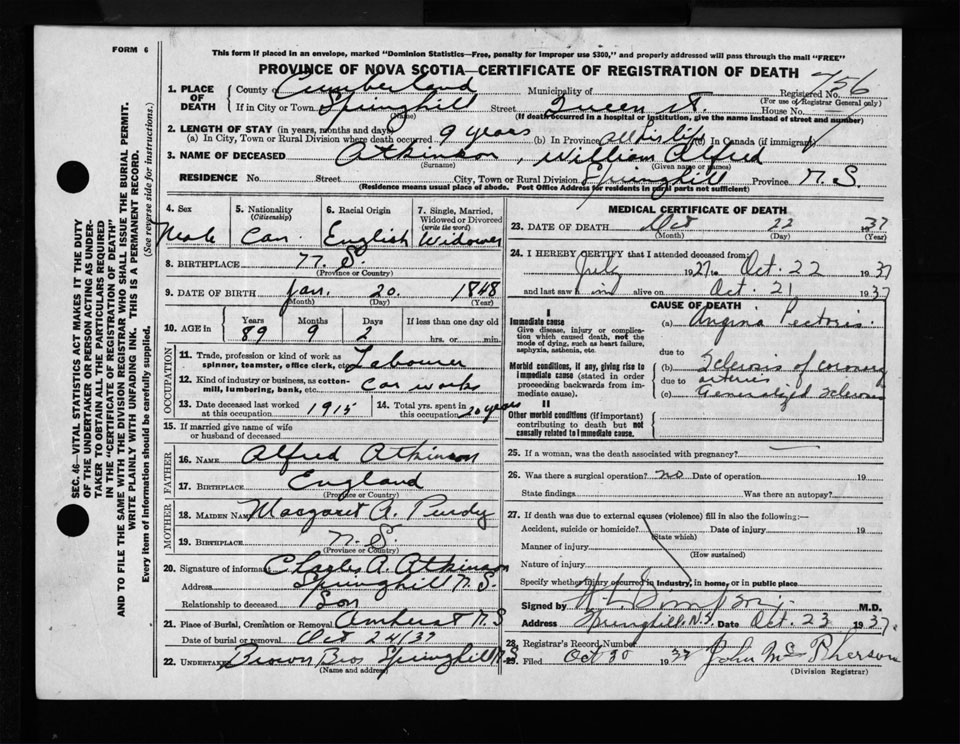 FORM 6
This form if placed in an envelope, marked "Dominion Statistics—Free, penalty for improper use $300," and properly addressed will pass through the mail "FREE"
PROVINCE OF NOVA SCOTIA—CERTIFICATE OF REGISTRATION OF DEATH
756
1. PLACE OF DEATH
County of Cumberland Municipality of Registered No.
(For use of Registrar General only)
If in City or Town Springhill Street Queen St. House No.
(Name) (If death occurred in a hospital or institution, give the name instead of street and number)
2. LENGTH OF STAY (in years, months and days)
(a) In City, Town or Rural Division where death occurred 9 years (b) In Province all his life (c) In Canada (if immigrant)
3. NAME OF DECEASED Atkinson, William Alfred
(Surname) (Given name or names)
RESIDENCE No. Street City, Town or Rural Division Springhill Province N. S.
(Residence means usual place of abode. Post Office Address for residents in rural parts not sufficient)
SEC. 46—VITAL STATISTICS ACT MAKES IT THE DUTY
OF THE UNDERTAKER OR PERSON ACTING AS UNDER-
TAKER TO OBTAIN ALL THE PARTICULARS REQUIRED
IN THE "CERTIFICATE OF REGISTRATION OF DEATH"
AND TO FILE THE SAME WITH THE DIVISION REGISTRAR WHO SHALL ISSUE THE BURIAL PERMIT.
WRITE PLAINLY WITH UNFADING INK. THIS IS A PERMANENT RECORD.
Every item of information should be carefully supplied. (See reverse side for instructions.)
4. Sex 5. Nationality (Citizenship) 6. Racial Origin 7. Single, Married, Widowed or Divorced (write the word)
Male Can. English Widower
8. BIRTHPLACE N. S.
(Province or Country)
9. DATE OF BIRTH Jan. 20. 1848
(Month) (Day) (Year)
10. AGE in Years Months Days If less than one day old
89 9 2 hrs. or min.
OCCUPATION
11. Trade, profession or kind of work as spinner, teamster, office clerk, etc. Labourer
12. Kind of industry or business, as cotton-mill, lumbering, bank, etc. Car works
13. Date deceased last worked at this occupation 1915 14. Total yrs. spent in this occupation 20 years
15. If married give name of wife or husband of deceased
FATHER
16. NAME Alfred Atkinson
17. BIRTHPLACE England
(Province or Country)
MOTHER
18. MAIDEN NAME Margaret A. Purdy
19. BIRTHPLACE N. S.
(Province or Country)
20. Signature of informant Charles A. Atkinson
Address Springhill N. S.
Relationship to deceased Son
21. Place of Burial, Cremation or Removal Amherst N S
Date of burial or removal Oct 24/37
22. Undertaker Brown Bros Springhill N S
(Name and address)
MEDICAL CERTIFICATE OF DEATH
23. DATE OF DEATH Oct 22 1937
(Month) (Day) (Year)
24. I HEREBY CERTIFY that I attended deceased from:
July 1927 to Oct. 22 1937
and last saw him alive on Oct. 21 1937
CAUSE OF DEATH
I
Immediate cause
Give disease, injury or complication which caused death, not the mode of dying, such as heart failure, asphyxia, asthenia, etc.
(a) Angina Pectoris
due to
Morbid conditions, if any, giving rise to immediate cause (stated in order proceeding backwards from immediate cause).
(b) Sclerosis of coronary
due to arteries
(c) Generalized Sclerosis
II
Other morbid conditions (if important) contributing to death but not causally related to immediate cause.
25. If a woman, was the death associated with pregnancy?
26. Was there a surgical operation? no Date of operation 19
State findings Was there an autopsy?
27. If death was due to external causes (violence) fill in also the following:—
Accident, suicide or homicide? Date of injury 19
(State which)
Manner of injury
(How sustained)
Nature of injury
Specify whether injury occurred in industry, in home, or in public place
Signed by M.D.
Address Springhill, N.S. Date Oct. 23 1937
28. Registrar's Record Number
29. Filed Oct 30 1937 John McPherson
(Division Registrar)